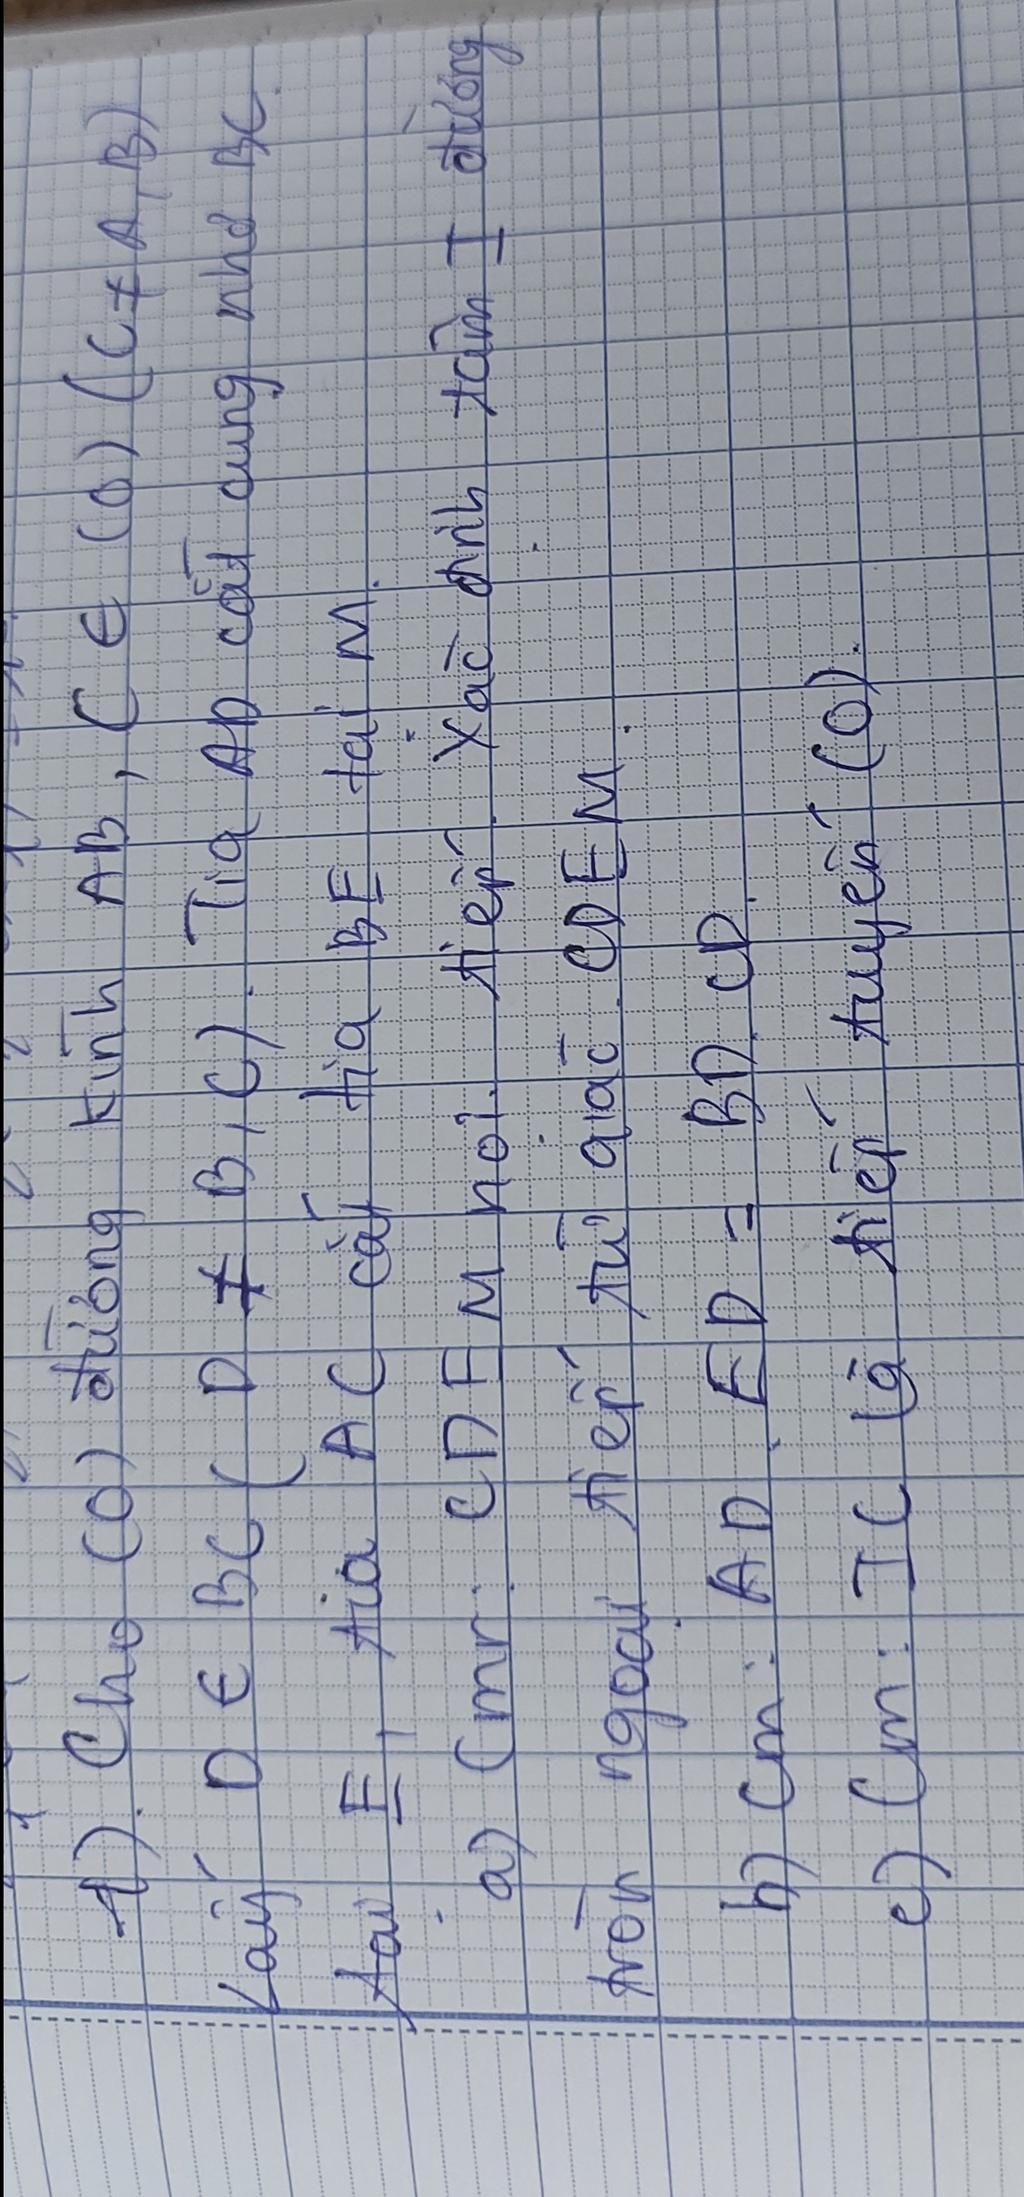 1). Cho (O) đường kính AB, C ∈ (O) (C ≠ A, B)
Lấy D ∈ BC (D ≠ B, C). Tia AD cắt cung nhỏ BC
tại E, tia AC cắt tia BE tại M.
a) Cmr: CDEM nội tiếp. Xác định tâm I đường
tròn ngoại tiếp tứ giác CDEM.
b) Cm: AD. ED = BD. CD.
c) Cm: IC là tiếp tuyến (O).